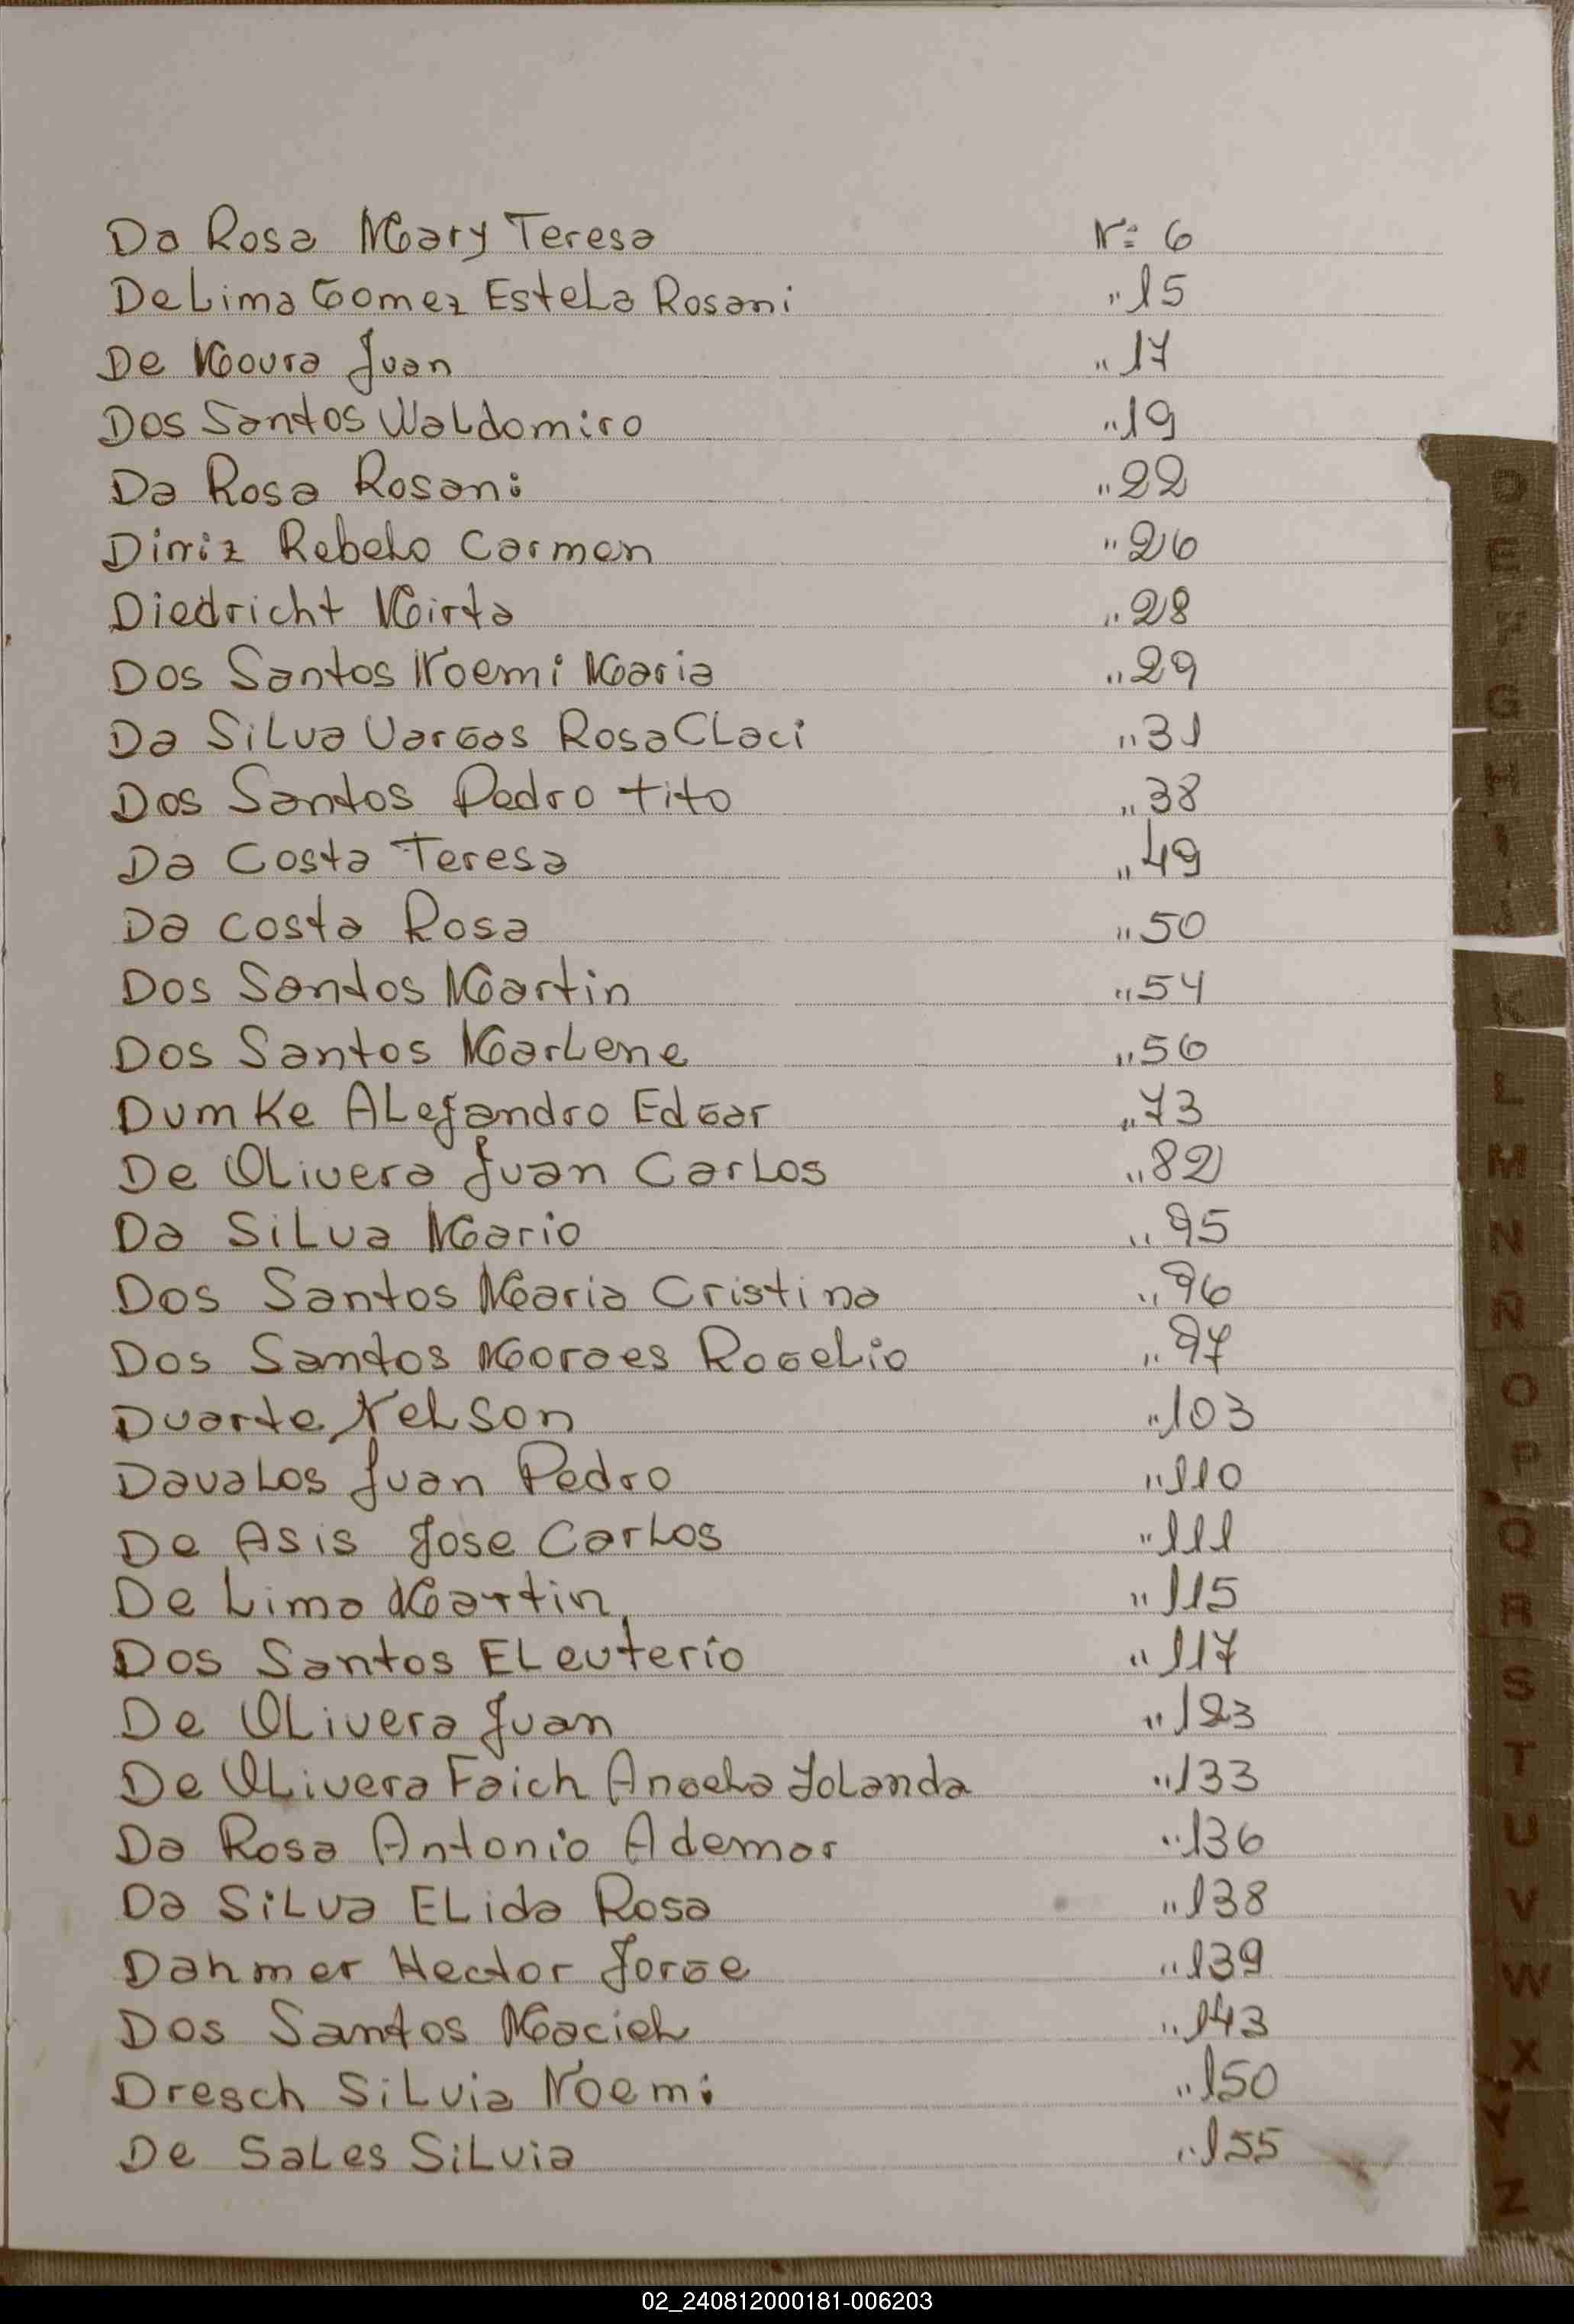 Da Rosa Mary Teresa Nº: 6
De Lima Gomez Estela Rosani " 15
De Moura Juan " 17
Dos Santos Waldomiro " 19
Da Rosa Rosani " 22
Diniz Rebelo Carmen " 26
Diedricht Mirta " 28
Dos Santos Noemi Maria " 29
Da Silva Vargas Rosa Claci " 31
Dos Santos Pedro tito " 38
Da Costa Teresa " 49
Da costa Rosa " 50
Dos Santos Martin " 54
Dos Santos Marlene " 56
Dumke Alejandro Edgar " 73
De Olivera Juan Carlos " 82
Da Silva Mario " 95
Dos Santos Maria Cristina " 96
Dos Santos Moraes Rogelio " 97
Duarte Nelson " 103
Davalos Juan Pedro " 110
De Asis Jose Carlos " 111
De Lima Martin " 115
Dos Santos Eleuterio " 117
De Olivera Juan " 123
De Olivera Faich Angela Yolanda " 133
Da Rosa Antonio Ademar " 136
Da Silva Elida Rosa " 138
Dahmer Hector Jorge " 139
Dos Santos Maciel " 143
Dresch Silvia Noemi " 150
De Sales Silvia " 155
D
E
F
G
H
I
J
K
L
M
N
Ñ
O
P
Q
R
S
T
U
V
W
X
Y
Z
02_240812000181-006203